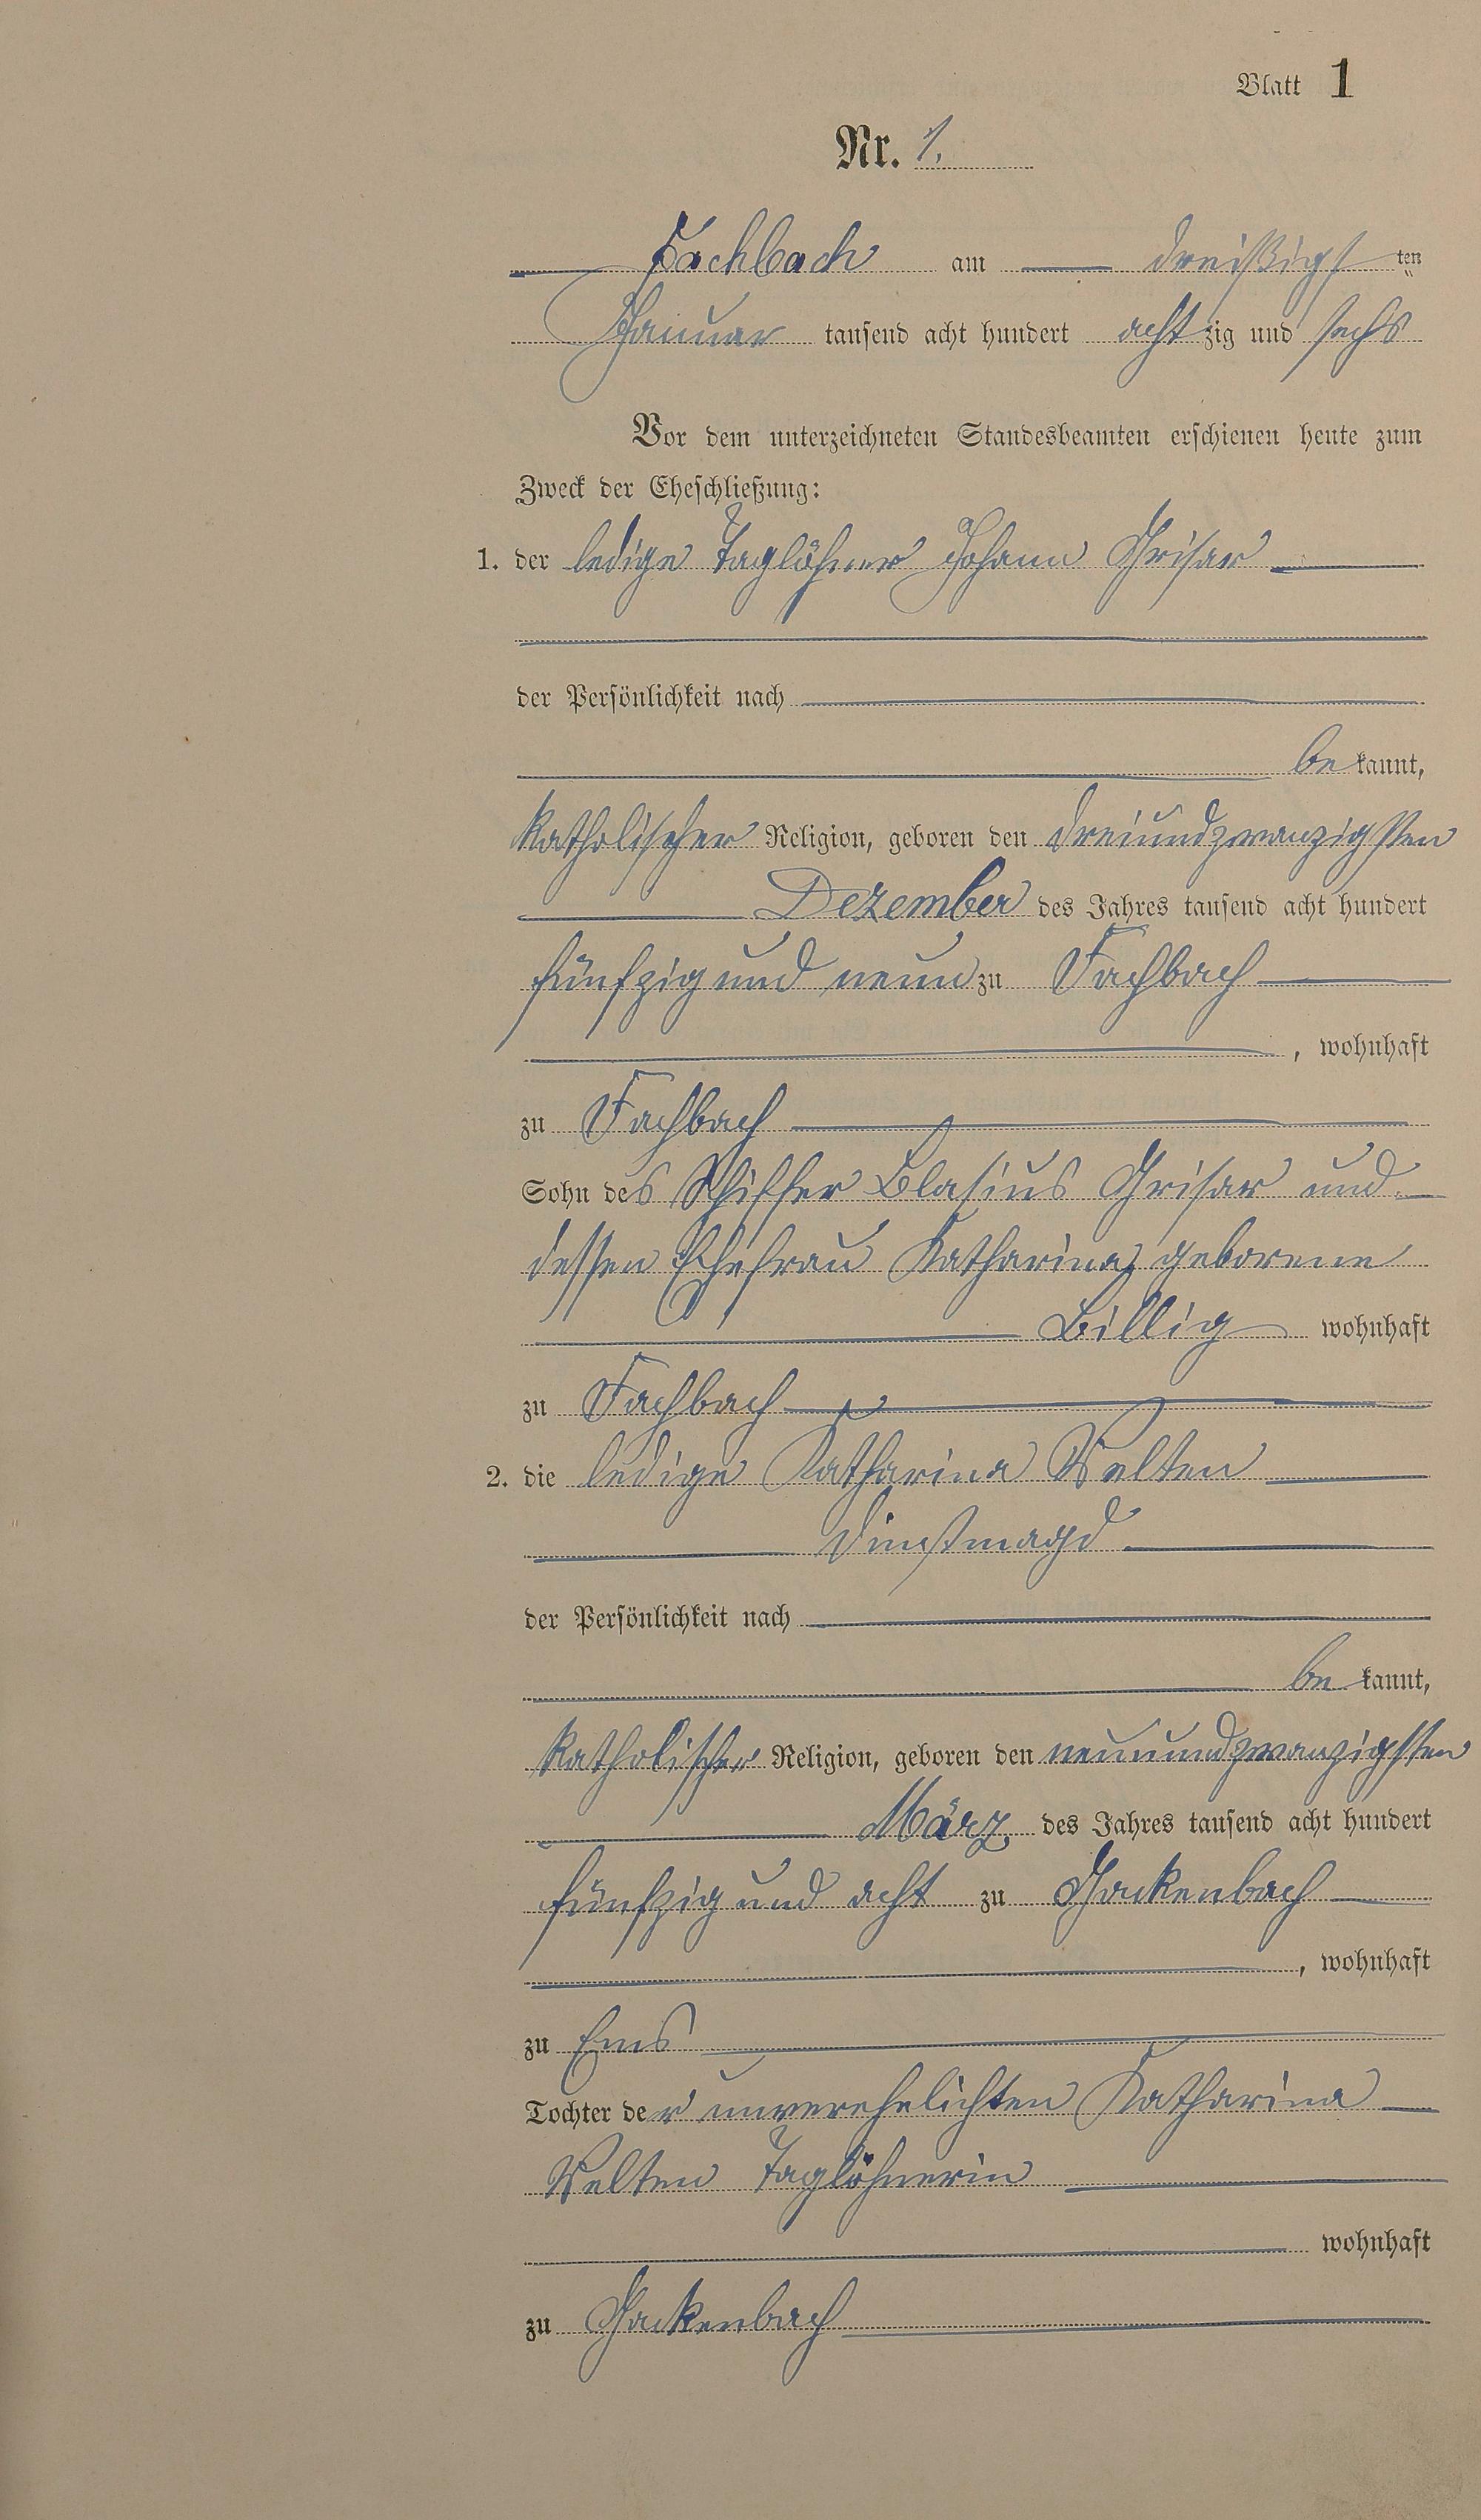 Blatt 1
Nr. 1.
Fachbach am dreißigsten
Januar tausend acht hundert achtzig und sechs
Vor dem unterzeichneten Standesbeamten erschienen heute zum
Zweck der Eheschließung:
1. der ledige Taglöhner Johann Grisar
der Persönlichkeit nach
bekannt,
katholischer Religion, geboren den dreiundzwanzigsten
Dezember des Jahres tausend acht hundert
fünfzig und neun zu Fachbach
, wohnhaft
zu Fachbach
Sohn des Schiffer Blasius Grisar und
dessen Ehefrau Katharina, geborene
Billig wohnhaft
zu Fachbach
2. die ledige Katharina Velten
Dinstmagd
der Persönlichkeit nach
bekannt,
katholischer Religion, geboren den neunundzwanzigsten
März des Jahres tausend acht hundert
fünfzig und acht zu Gackenbach
, wohnhaft
zu Ems
Tochter der unverehelichten Katharina
Velten Taglöhnerin
wohnhaft
zu Gackenbach